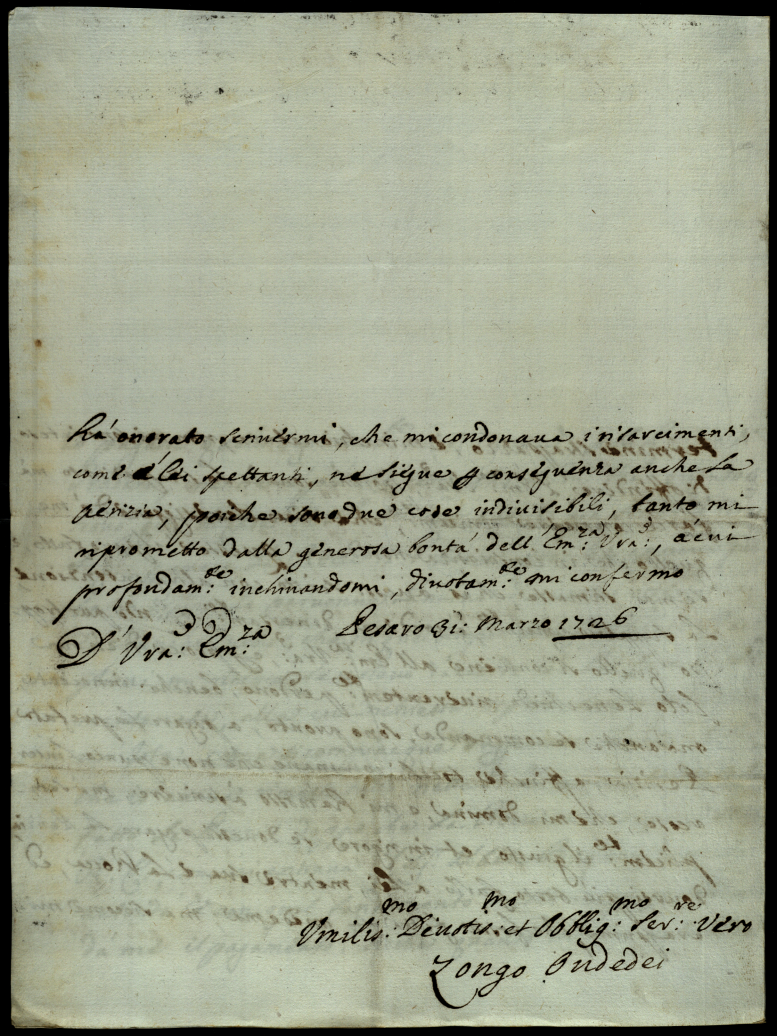 hà onorato scrivermi, che mi condonava i risarcimenti,
come à lei spettanti, ne sigue p consequenza anche la
perizia, poiche sono due cose indivisibili, tanto mi
riprometto dalla generosa bontà dell'Em:za Vra:, à cui
profondam:te inchinandomi, divotam:te mi confermo
D' Vra: Em:za Pesaro 31: Marzo 1726
Umilis:mo Divotis:mo et Obblig:mo Ser:re Vero
Zongo Ondedei